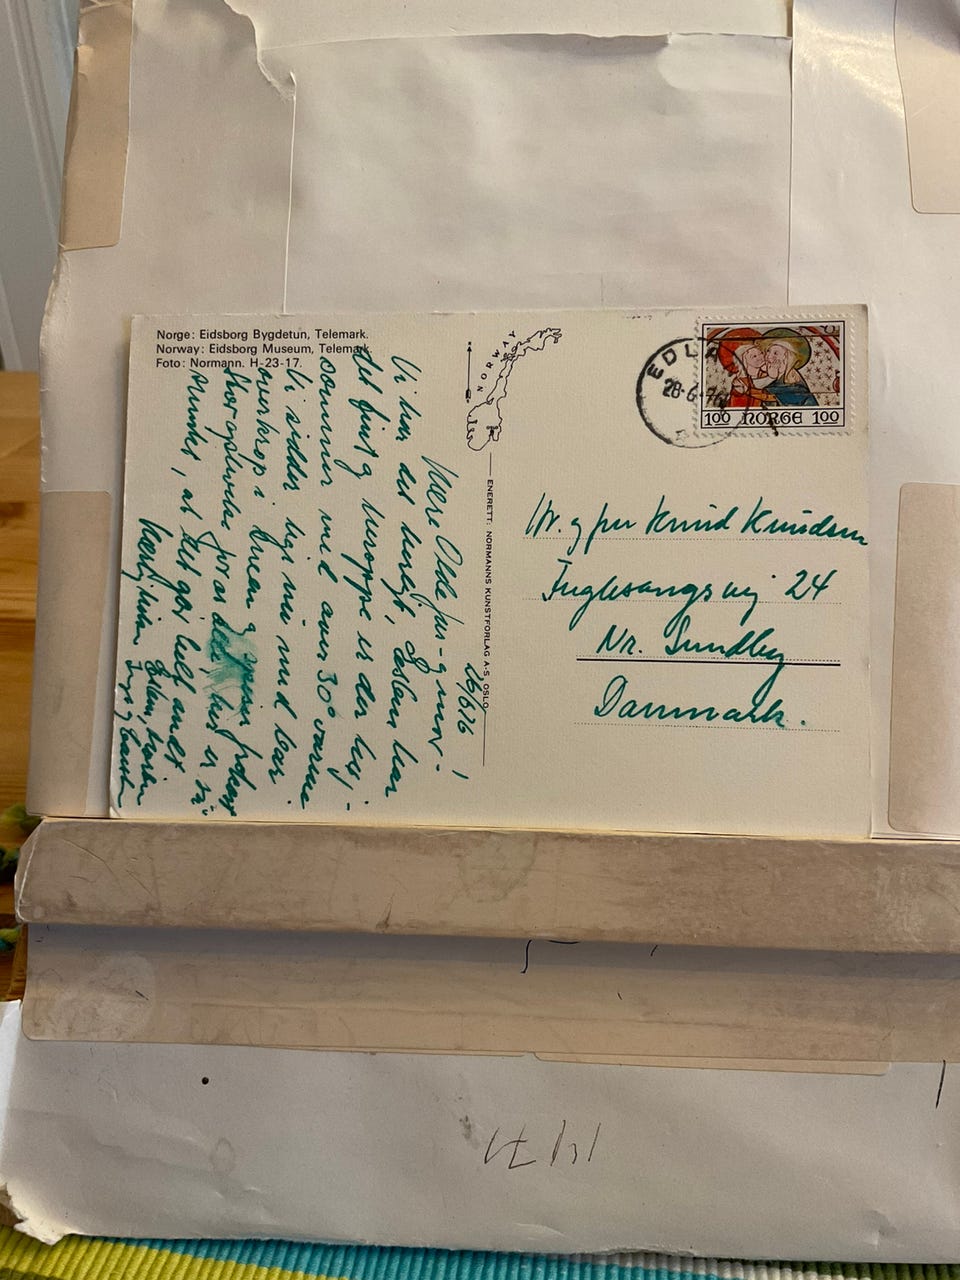 Norge: Eidsborg Bygdetun, Telemark.
Norway: Eidsborg Museum, Telemark.
Foto: Normann. H-23-17.
NORWAY
ENERETT: NORMANNS KUNSTFORLAG A-S, OSLO
EDLA
28-6-76
100 NORGE 100
26/6 76
Kære Olde far - g mor!
Vi har det herligt, Esben har
det fint g heroppe er der høj-
sommer med over 30° varme
Vi sidder lige nu med bar
overkrop i g
så
smukt, at det gør helt ondt
Kærlig hilsen Esben,
Inge g
Hr. g fru Knud Knudsen
Fuglesangsvej 24
Nr. Sundby
Danmark.